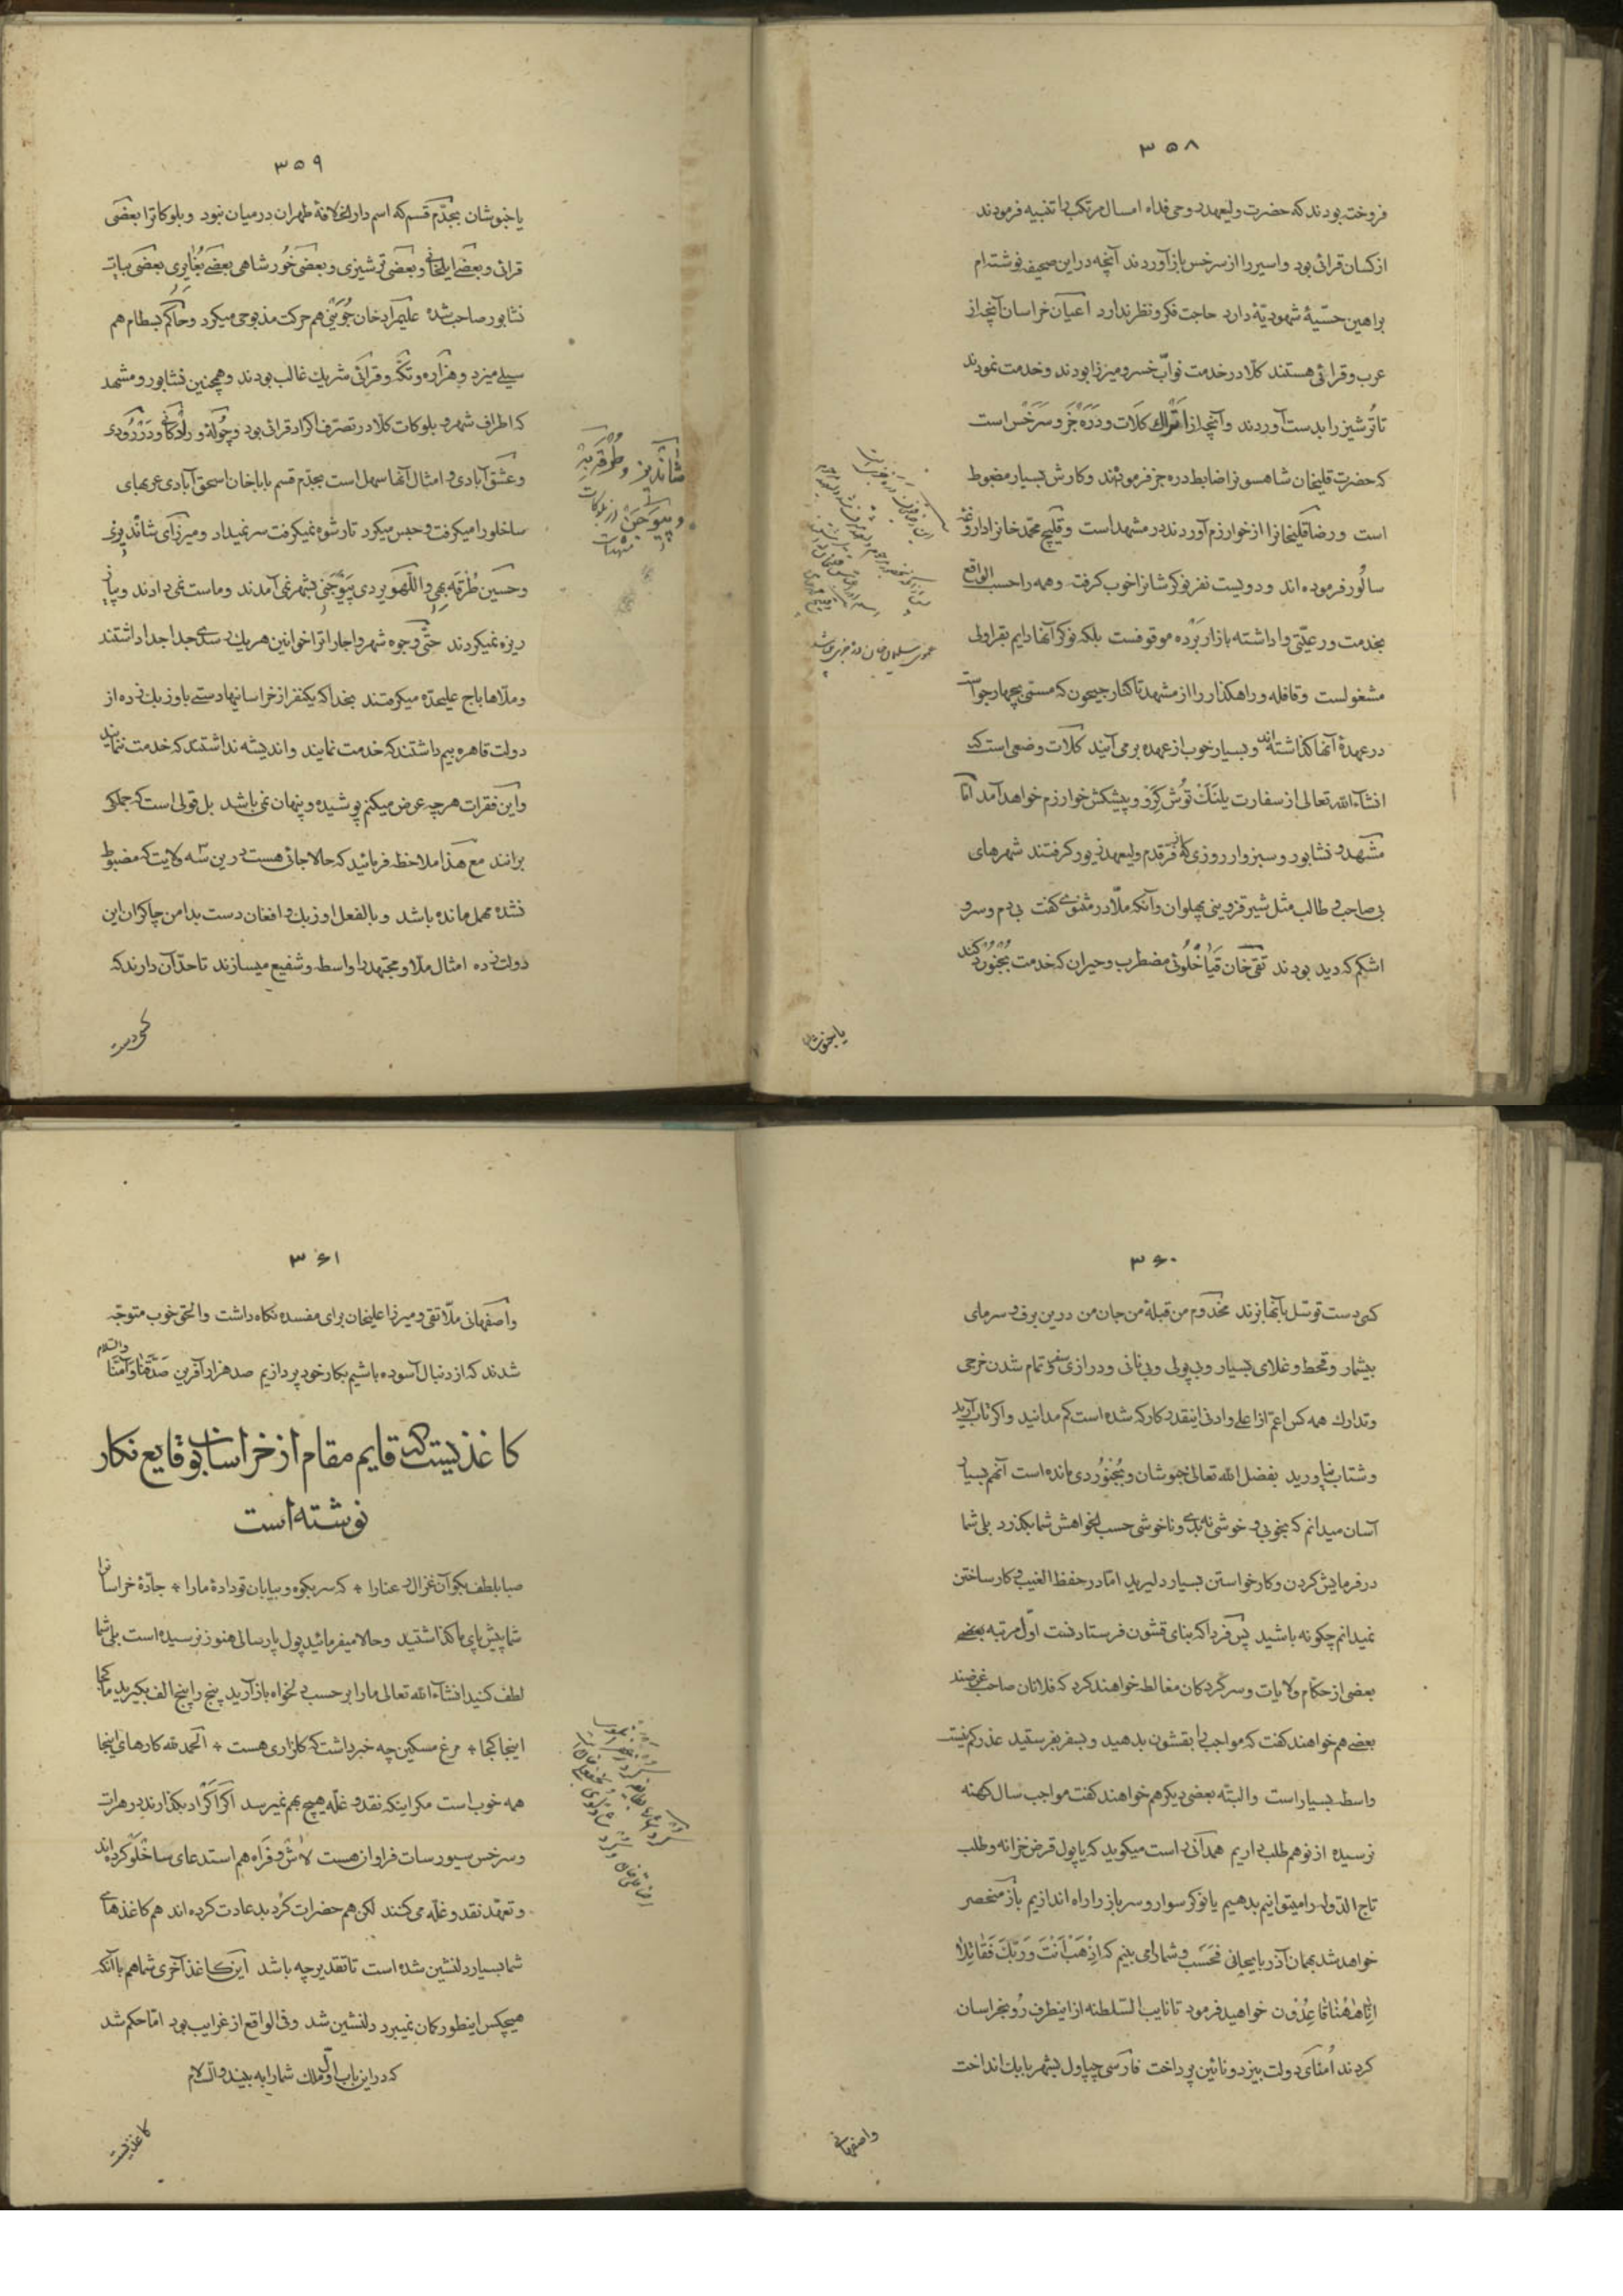 ۳۵۸
فروخته بودند که حضرت ولیعهد روحی فداه امسال مرتکب را تنبیه فرمودند
از کسان قرائی بود و اسیر را از سرخس باز آوردند آنچه در این صحیفه نوشته‌ام
براهین حسّیهٔ شهودیّهٔ دارد حاجت فکر و نظر ندارد اعیان خراسان آنچه از
عرب و قرائی هستند کلّا در خدمت نوّاب خسرو میرزا بودند و خدمت نمودند
تا تُرشیز را بدست آوردند و آنچه از اَتْراک کَلات و دَرَه جَز و سَرَخْس است
که حضرت قلیخان شاهسون را ضابط دره جز فرمودند و کارش بسیار مضبوط
است و رضا قلیخانرا از خوارزم آوردند در مشهد است و قلیچ محمّد خانرا داروغهٔ
سالُور فرموده‌اند و دویست نفر نوکر شانرا خوب گرفت و همه را حسب الواقع
بخدمت و رعیّتی واداشته بازار بَرْده موقوفست بلکه نوکر آنها دایم بقراولی
مشغولست و قافله و راهگذار را از مشهد تا کنار جیحون که مسمّی بچهار جو است
در عهدهٔ آنها گذاشته‌اند و بسیار خوب از عهده بر می‌آیند کلات وضعی است که
انشاءالله تعالی از سفارت یلنک توش کزو و پیشکش خوارزم خواهد آمد امّا
مشهد و نشابور و سبزوار روزی که فرّ قدم ولیعهدی زیور گرفتند شهرهای
بی صاحب و طالب مثل شیر قزوینی پهلوان و آنکه ملّا در مثنوی گفت بی دم و سر و
اشکم که دید بودند تقی خان قَیاخْلُوئی مضطرب و حیران که خدمت بُجْنُورْد کند
یا بخبوشان
۳۵۹
یا خبوشان بجدّم قسم که اسم دار الخلافهٔ طهران در میان نبود و بلوکاترا بعضی
قرائی و بعضی ایلخانی و بعضی ترشیزی و بعضی خُور شاهی بعضی بُغایِری بعضی بیات
نشابور صاحب شده علیمراد خان جُوَیْنی هم حرکت مذبوحی میکرد و حاکم بسطام هم
سیلی میزد و هزاره و تَکّه و قرائی شریک غالب بودند و همچنین نشابور و مشهد
که اطراف شهر و بلوکات کلّا در تصرّف اکراد قرائی بود و چُولهٔ و رادکانی و دَرْزُودی
و عشق آبادی و امثال آنها سهل است بجدّم قسم بابا خان اسحق آبادی عربهای
ساخلو را میگرفت و حبس میکرد تا رشوه نمیگرفت سر نمیداد و میرزای شاندیزی
و حسین طُرقَبهی و اللّهویردی پیوجنی بشهر نمی‌آمدند و ماست نمی‌دادند و پیاز
ریزه نمیکردند حتّی وجوه شهر و اجاراترا خوانین هر یک رسدی جدا جدا داشتند
و ملّاها باج علیحدّه میگرفتند بخدا که یکنفر از خراسانیها دستی باوزبک نزده از
دولت قاهره بیم داشتند که خدمت نمایند و اندیشه نداشتند که خدمت ننمایند
و این فقرات هر چه عرض میکنم پوشیده و پنهان نمی‌باشد بل قولی است که جملگی
برانند مع هذا ملاحظه فرمائید که حالا جائی هست درین سه ولایت که مضبوط
نشده مهمل مانده باشد و بالفعل اوزبک و افغان دست بدامن چاکران این
دولت زده امثال ملّا و مجتهد را واسطه و شفیع میسازند تا حدّ آن دارند که
کسی دست
شاندیز و طُرْقَبه
و پیوجن از بلوکات
مشهدات
۳۶۰
کسی دست توسّل بآنها بزند مخدوم من قبلهٔ من جان من درین برف و سرمای
بیشمار و قحط و غلای بسیار و بی پولی و بی نانی و درازی سفر و تمام شدن خرجی
و تدارک همه کس اعمّ از اعلی و ادنی اینقدر کار که شده است کم مدانید و اگر تاب آرید
و شتاب نیاورید بفضل الله تعالی خبوشان و بُجْنُوُردی مانده است آنهم بسیار
آسان میدانم که بخوبی و خوشی نه بدی و ناخوشی حسب الخواهش شما بگذرد بلی شما
در فرمایش کردن و کار خواستن بسیار دلیرید امّا در حفظ الغیب و کار ساختن
نمیدانم چگونه باشید پس فردا که بنای قشون فرستادنست اوّل مرتبه بعضی
بعضی از حکّام ولایات و سرکردگان مغالطه خواهند کرد که فلانان صاحب غرضند
بعضی هم خواهند گفت که مواجب را بقشون بدهید و بسفر بفرستید عذر کم نیست
واسطه بسیار است و البتّه بعضی دیگر هم خواهند گفت مواجب سال کهنه
نرسیده از نو هم طلب داریم همدانی است میگوید که یا پول قرض خزانه و طلب
تاج الدّوله را میتوانیم بدهیم یا نوکر سوار و سرباز را راه اندازیم باز منحصر
خواهد شد بهمان آذربایجانی فَحَسْب و شما را می بینم که اِذْهَبْ اَنْتَ وَ رَبُّکَ فَقاتِلا
اِنّا هٰهُنا قاعِدُون خواهید فرمود تا نایب السّلطنه از اینطرف رُو بخراسان
کردند اُمنای دولت بیزد و نائین پرداخت فارسی چپاول بشهر بابک انداخت
و اصفهانی
۳۶۱
و اصفهانی ملّا تقی و میرزا علیخان برای مفسده نگاه داشت و الحق خوب متوجّه
شدند که از دنبال آسوده باشیم بکار خود پردازیم صد هزار آفرین صَدَّقْنا وَ آمَنّا والسّلام
کاغذیست که قایم مقام از خراسان بوقایع نگار
نوشته است
صبا بلطف بگو آن غزال رعنا را * که سر بکوه و بیابان تو دادهٔ ما را * جادّهٔ خراسانرا
شما پیش پای ما گذاشتید و حالا میفرمائید پول پارسالی هنوز نرسیده است بلی شما
لطف کنید انشاءالله تعالی ما را بر حسب دلخواه باز آرید پنج را پنج الف بگیرید ما کجا
اینجا کجا * مرغ مسکین چه خبر داشت که گلزاری هست * الحمد لله کارهای اینجا
همه خوب است مگر اینکه نقد و غلّه هیچ بهم نمیرسد اگر اَکْراد بگذارند در هرات
و سرخس سیورسات فراوان هست لاش و فَراه هم استدعای ساخلو کرده‌اند
و تعهّد نقد و غلّه می کنند لکن هم حضرات کُرد بد عادت کرده‌اند هم کاغذهای
شما بسیار دلنشین شده است تا تقدیر چه باشد این کاغذ آخری شما هم با آنکه
هیچکس اینطور گمان نمیبرد دلنشین شد و فی الواقع از غرایب بود امّا حکم شد
که در این باب اوّل ملک شما را به بیند والسّلام
کاغذیست